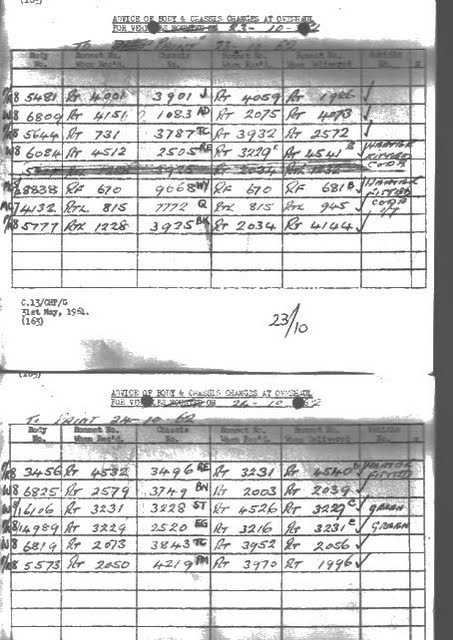 (163)
ADVICE OF BODY & CHASSIS CHANGES AT OVERHAUL
FOR VEHICLES MOUNTED ON 23-10-62
TO PAINT 23-10-62
Body No. Bonnet No. When Rec'd. Chassis No. Bonnet No. When Delivered
R8 5481 RT 4001 3901 J RT 4059 RT 1986 ✓
W8 6809 RT 4151 1083 AD RT 2075 RT 4073 ✓
R8 5644 RT 731 3787 TC RT 3932 RT 2572 ✓
W8 6084 RT 4512 2505 RE RT 3229 C RT 4541 B ✓ HEATER FITTED
8838 RF 670 9068 WY RF 670 RF 681 B ✓ HEATER FITTED
4132 RTL 815 7772 Q RTL 815 RTL 945 ✓
R8 5777 RTL 1228 3975 BK RT 2034 RT 4144 ✓
C.13/CHP/G
31st May, 1961.
(163)
23/10
ADVICE OF BODY & CHASSIS CHANGES AT OVERHAUL
FOR VEHICLES MOUNTED ON 24-10-62
TO PAINT 24-10-62
Body No. Bonnet No. When Rec'd. Chassis No. Bonnet No. When Delivered
R8 3456 RT 4532 3496 RE RT 3231 RT 4540 B ✓ HEATER FITTED
W8 6825 RT 2579 3749 BN RT 2003 RT 2039 ✓
6106 RT 3231 3228 ST RT 4526 RT 3229 C ✓ GREEN
4989 RT 3229 2520 EG RT 3216 RT 3231 C ✓ GREEN
W8 6819 RT 2073 3843 TG RT 3952 RT 2056 ✓
R8 5573 RT 2050 4219 PM RT 3970 RT 1996 ✓